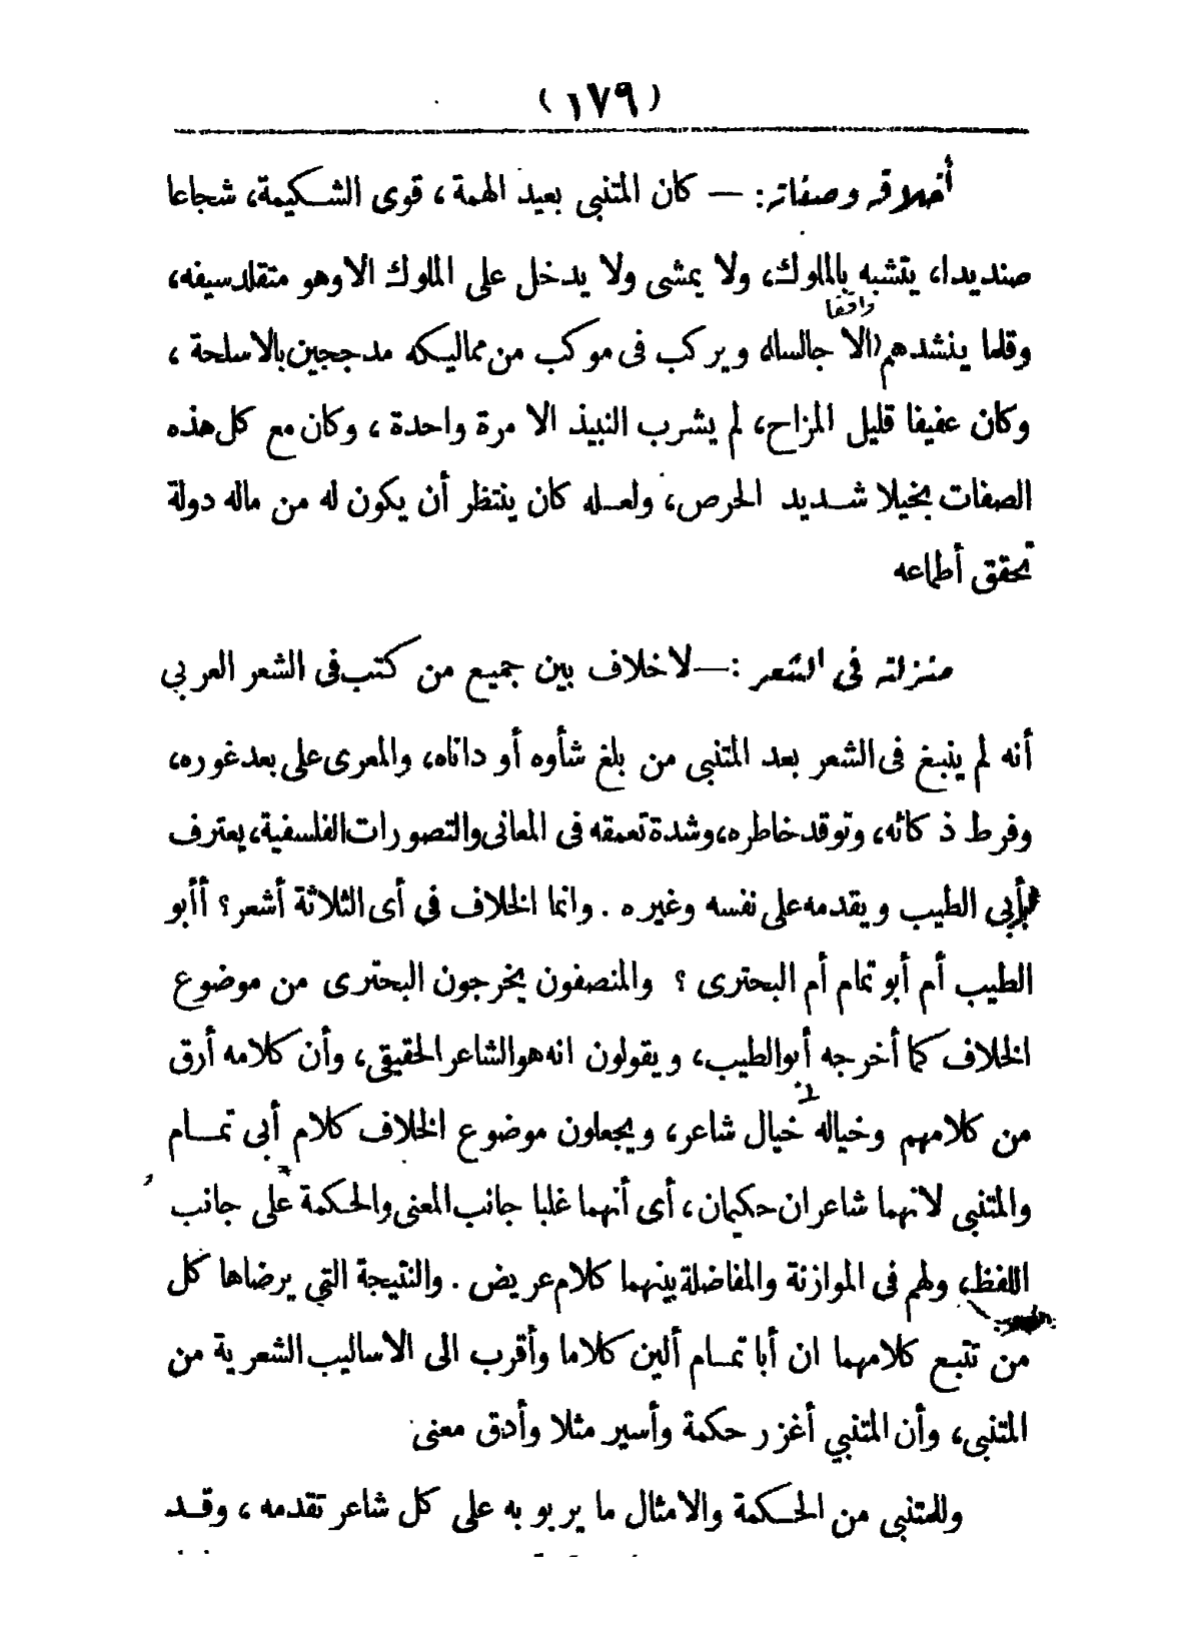 (١٧٩)
أخلاقه وصفاته: — كان المتنبى بعيد الهمة، قوى الشكيمة، شجاعا
صنديدا، يتشبه بالملوك، ولا يمشى ولا يدخل على الملوك الا وهو متقلد سيفه،
واقفا
وقلما ينشدهم الا جالسا، ويركب فى موكب من مماليكه مدججين بالاسلحة،
وكان عفيفا قليل المزاح، لم يشرب النبيذ الا مرة واحدة، وكان مع كل هذه
الصفات بخيلا شديد الحرص، ولعله كان ينتظر أن يكون له من ماله دولة
تحقق أطماعه
منزلته فى الشعر: — لا خلاف بين جميع من كتب فى الشعر العربي
أنه لم ينبغ فى الشعر بعد المتنبى من بلغ شأوه أو داناه، والمعرى على بعد غوره،
وفرط ذكائه، وتوقد خاطره، وشدة تعمقه فى المعانى والتصورات الفلسفية، يعترف
بأبى الطيب ويقدمه على نفسه وغيره. وانما الخلاف فى أى الثلاثة أشعر؟ أأبو
الطيب أم أبو تمام أم البحترى؟ والمنصفون يخرجون البحترى من موضوع
الخلاف كما أخرجه أبو الطيب، ويقولون انه هو الشاعر الحقيقى، وأن كلامه أرق
من كلامهم وخياله خيال شاعر، ويجعلون موضوع الخلاف كلام أبى تمام
والمتنبى لانهما شاعران حكيمان، أى أنهما غلبا جانب المعنى والحكمة على جانب
اللفظ، ولهم فى الموازنة والمفاضلة بينهما كلام عريض. والنتيجة التي يرضاها كل
من تتبع كلامهما ان أبا تمام ألين كلاما وأقرب الى الاساليب الشعرية من
المتنبى، وأن المتنبي أغزر حكمة وأسير مثلا وأدق معنى
وللمتنبى من الحكمة والامثال ما يربو به على كل شاعر تقدمه، وقد